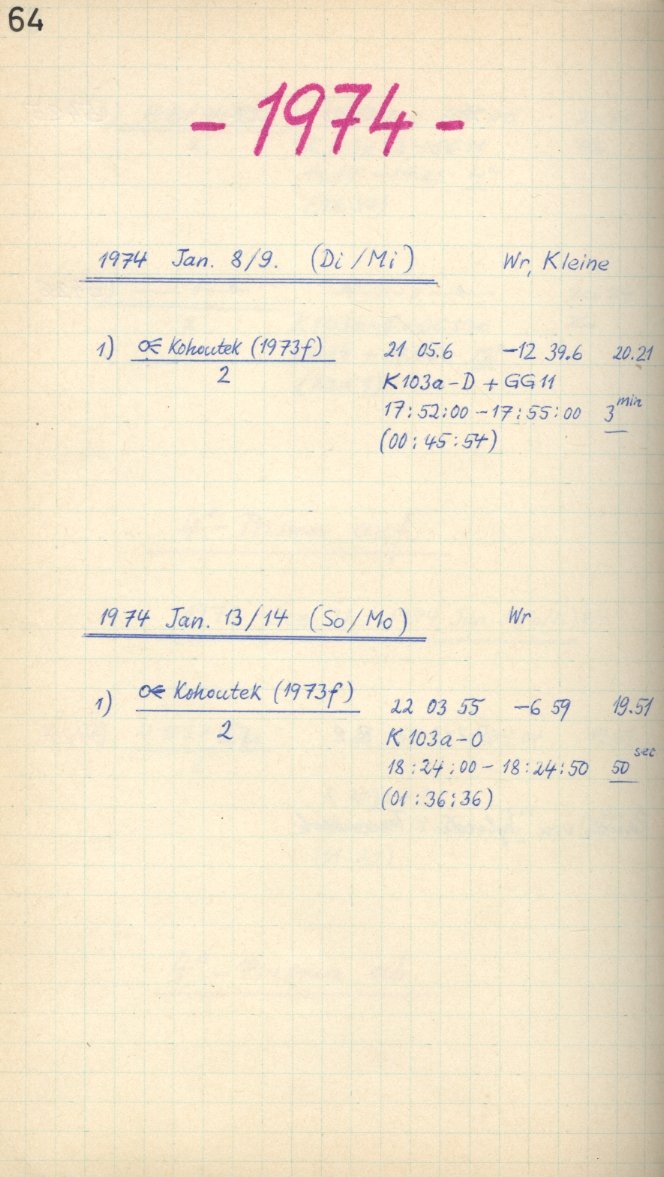 64
- 1974 -
1974 Jan. 8/9. (Di/Mi) Wr, Kleine
1) ☄ Kohoutek (1973f) 21 05.6 -12 39.6 20.21
2 K103a-D + GG11
17:52:00 - 17:55:00 3 min
(00:45:54)
1974 Jan. 13/14 (So/Mo) Wr
1) ☄ Kohoutek (1973f) 22 03 55 -6 59 19.51
2 K103a-O
18:24:00 - 18:24:50 50 sec
(01:36:36)